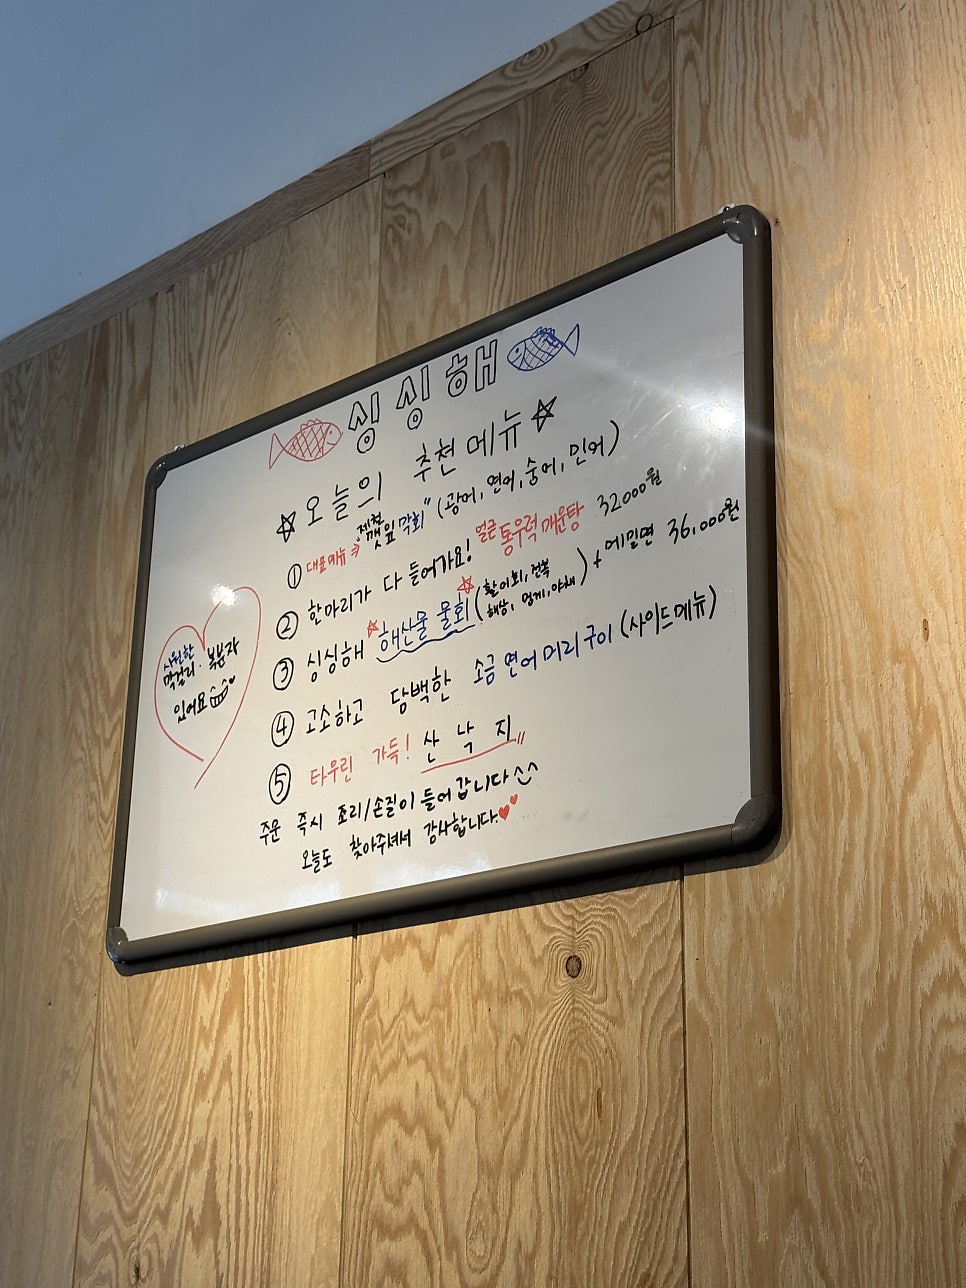 싱싱해
☆오늘의 추천메뉴☆
① 대표메뉴 → "제철 깻잎 막회" (광어, 연어, 숭어, 민어)
② 한마리가 다 들어가요! 얼큰 통우럭매운탕 32000원
③ 싱싱해 ☆해산물 물회☆ (활어회, 전복 해삼, 멍게, 야채) + 메밀면 36,000원
④ 고소하고 담백한 소금 연어머리구이 (사이드메뉴)
⑤ 타우린 가득! 산낙지
주문 즉시 조리/손질이 들어갑니다^^
오늘도 찾아주셔서 감사합니다.♥♥
시원한
막걸리·복분자
있어요